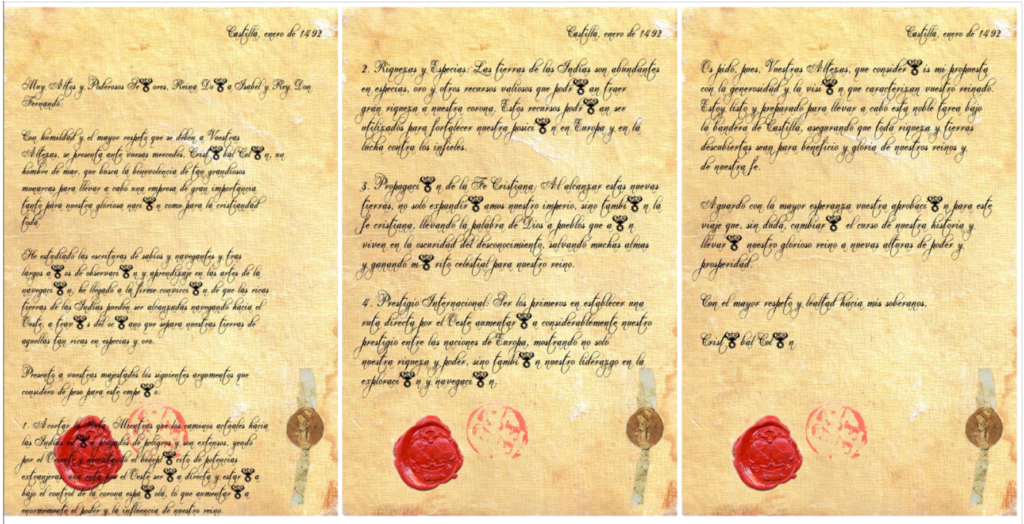 Castilla, enero de 1492
Muy Altos y Poderosos Se�ores, Reina Do�a Isabel y Rey Don
Fernando:
Con humildad y el mayor respeto que se deben a Vuestras
Altezas, se presenta ante vuesas mercedes, Crist�bal Col�n, un
hombre de mar, que busca la benevolencia de tan grandiosos
monarcas para llevar a cabo una empresa de gran importancia
tanto para nuestra gloriosa naci�n como para la cristiandad
toda.
He estudiado las escrituras de sabios y navegantes y tras
largos a�os de observaci�n y aprendizaje en las artes de la
navegaci�n, he llegado a la firme convicci�n de que las ricas
tierras de las Indias pueden ser alcanzadas navegando hacia el
Oeste, a trav�s del oc�ano que separa nuestras tierras de
aquellas tan ricas en especias y oro.
Presento a vuestras majestades los siguientes argumentos que
considero de peso para este empe�o:
1. Acortar la Ruta: Mientras que los caminos actuales hacia
las Indias est�n plagados de peligros y son extensos, yendo
por el Oriente y necesitando el benepl�cito de potencias
extranjeras, una ruta por el Oeste ser�a directa y estar�a
bajo el control de la corona espa�ola, lo que aumentar�a
enormemente el poder y la influencia de nuestro reino.
Castilla, enero de 1492
2. Riquezas y Especias: Las tierras de las Indias son abundantes
en especias, oro y otros recursos valiosos que podr�an traer
gran riqueza a nuestra corona. Estos recursos podr�an ser
utilizados para fortalecer nuestra posici�n en Europa y en la
lucha contra los infieles.
3. Propagaci�n de la Fe Cristiana: Al alcanzar estas nuevas
tierras, no solo expandir�amos nuestro imperio, sino tambi�n la
fe cristiana, llevando la palabra de Dios a pueblos que a�n
viven en la oscuridad del desconocimiento, salvando muchas almas
y ganando m�rito celestial para nuestro reino.
4. Prestigio Internacional: Ser los primeros en establecer una
ruta directa por el Oeste aumentar�a considerablemente nuestro
prestigio entre las naciones de Europa, mostrando no solo
nuestra riqueza y poder, sino tambi�n nuestro liderazgo en la
exploraci�n y navegaci�n.
Castilla, enero de 1492
Os pido, pues, Vuestras Altezas, que consider�is mi propuesta
con la generosidad y la visi�n que caracterizan vuestro reinado.
Estoy listo y preparado para llevar a cabo esta noble tarea bajo
la bandera de Castilla, asegurando que toda riqueza y tierras
descubiertas sean para beneficio y gloria de nuestros reinos y
de nuestra fe.
Aguardo con la mayor esperanza vuestra aprobaci�n para este
viaje que, sin duda, cambiar� el curso de nuestra historia y
llevar� nuestro glorioso reino a nuevas alturas de poder y
prosperidad.
Con el mayor respeto y lealtad hacia mis soberanos,
Crist�bal Col�n